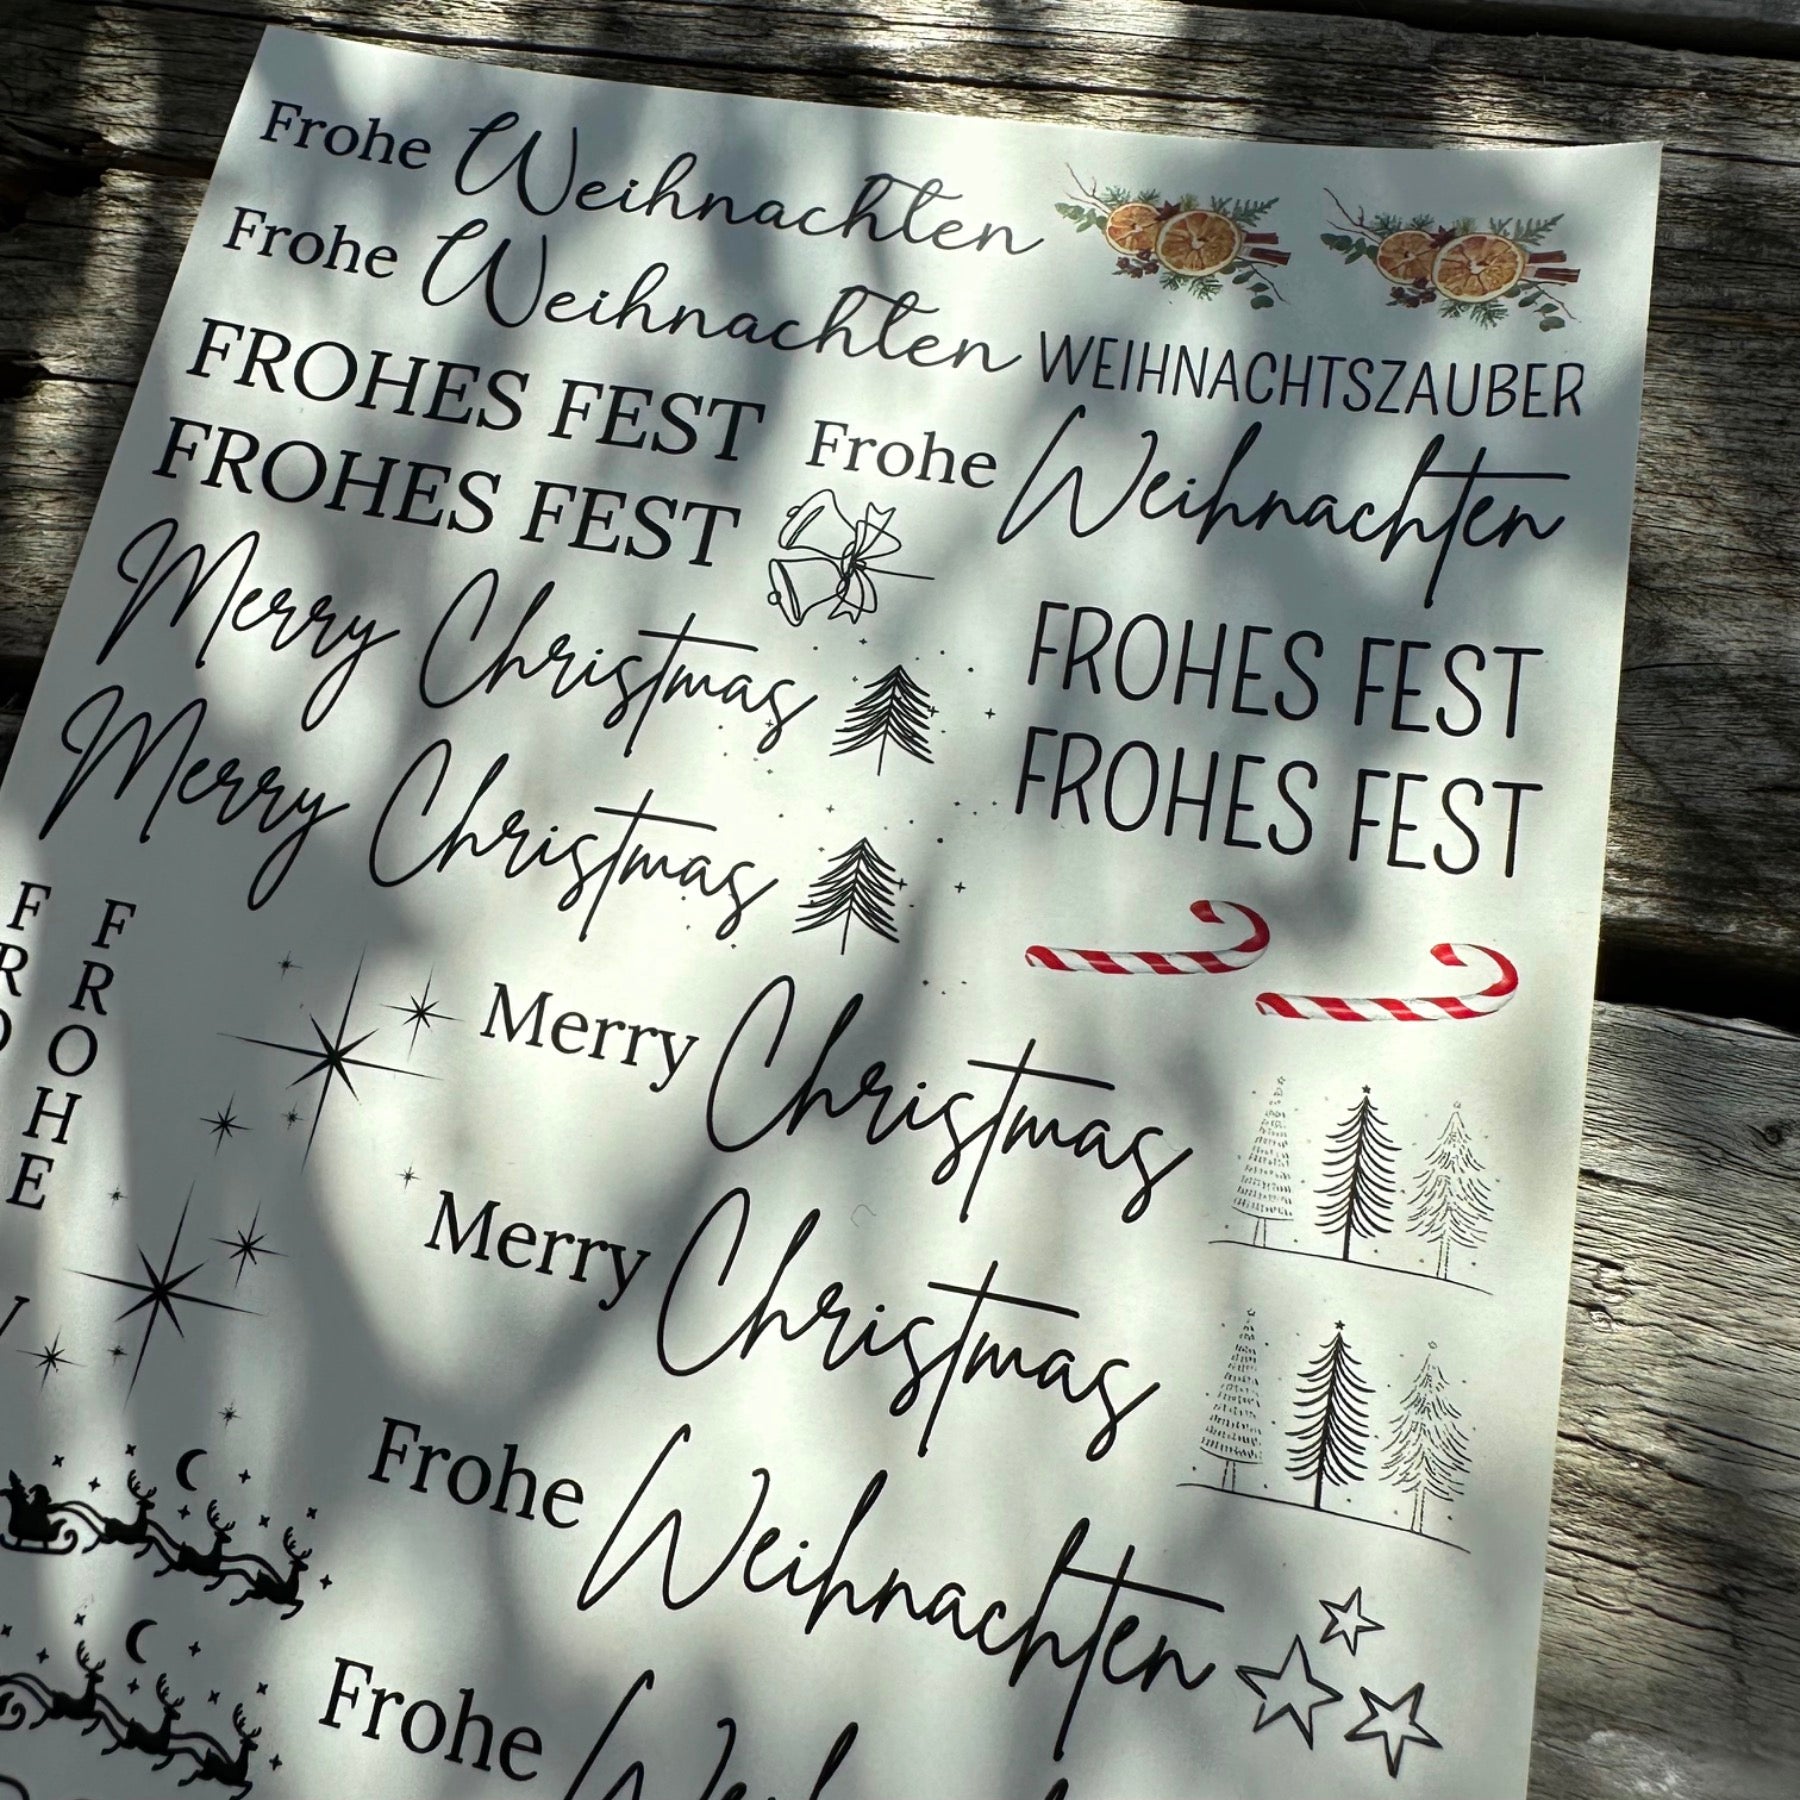 Frohe Weihnachten
Frohe Weihnachten
WEIHNACHTSZAUBER
FROHES FEST
Frohe Weihnachten
FROHES FEST
Merry Christmas
FROHES FEST
Merry Christmas
FROHES FEST
FROHE
Merry Christmas
Merry Christmas
Frohe Weihnachten
Frohe